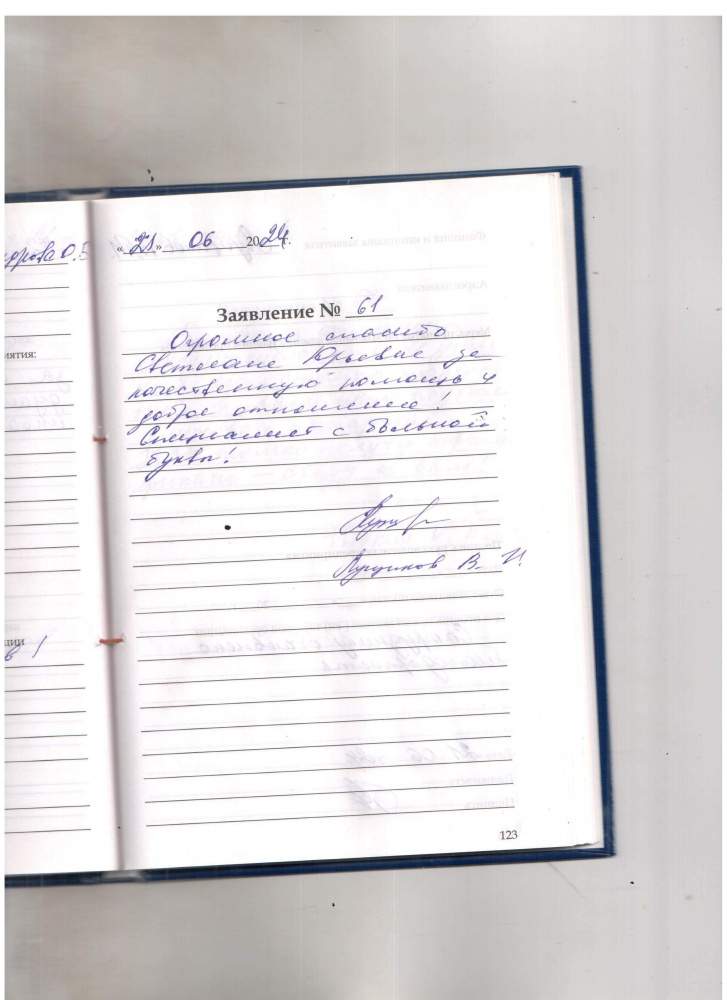 «21» 06 2024г.
Заявление № 61
Огромное спасибо
Светлане Юрьевне за
качественную помощь и
доброе отношение!
Специалист с большой
буквы!
В. И.
ятия:
ции
123